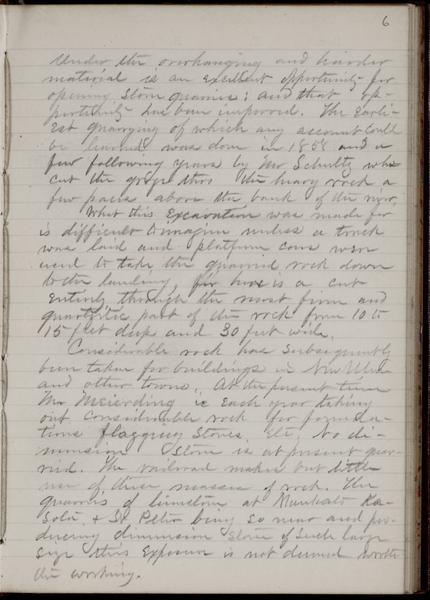 6
Under the overhanging and harder
material is an excellent opportunity for
opening stone quarries; and that op-
portunity has been improved. The earli-
est quarrying of which any account could
be learned was done in 1858 and a
few following years by Mr Schultz who
cut the gorge thro the heavy rock a
few paces above the bank of the river.
What this excavation was made for
is difficult to imagine unless a track
was laid and platform cars were
used to take the quarried rock down
to the landing, for here is a cut
entirely through the most firm and
quartzitic part of the rock from 10 to
15 feet deep and 30 feet wide.
Considerable rock has subsequently
been taken for buildings in New Ulm
and other towns. At the present time
Mr Meierding is each year taking
out considerable rock for founda-
tions flagging stones, etc. No di-
mension stone is at present quar-
ried. The railroad makes but little
use of these masses of rock. The
quarries of limestone at Mankato Ka-
sota & St. Peter being so near and pro-
ducing dimension stone of such large
size this exposure is not deemed worth
the working.